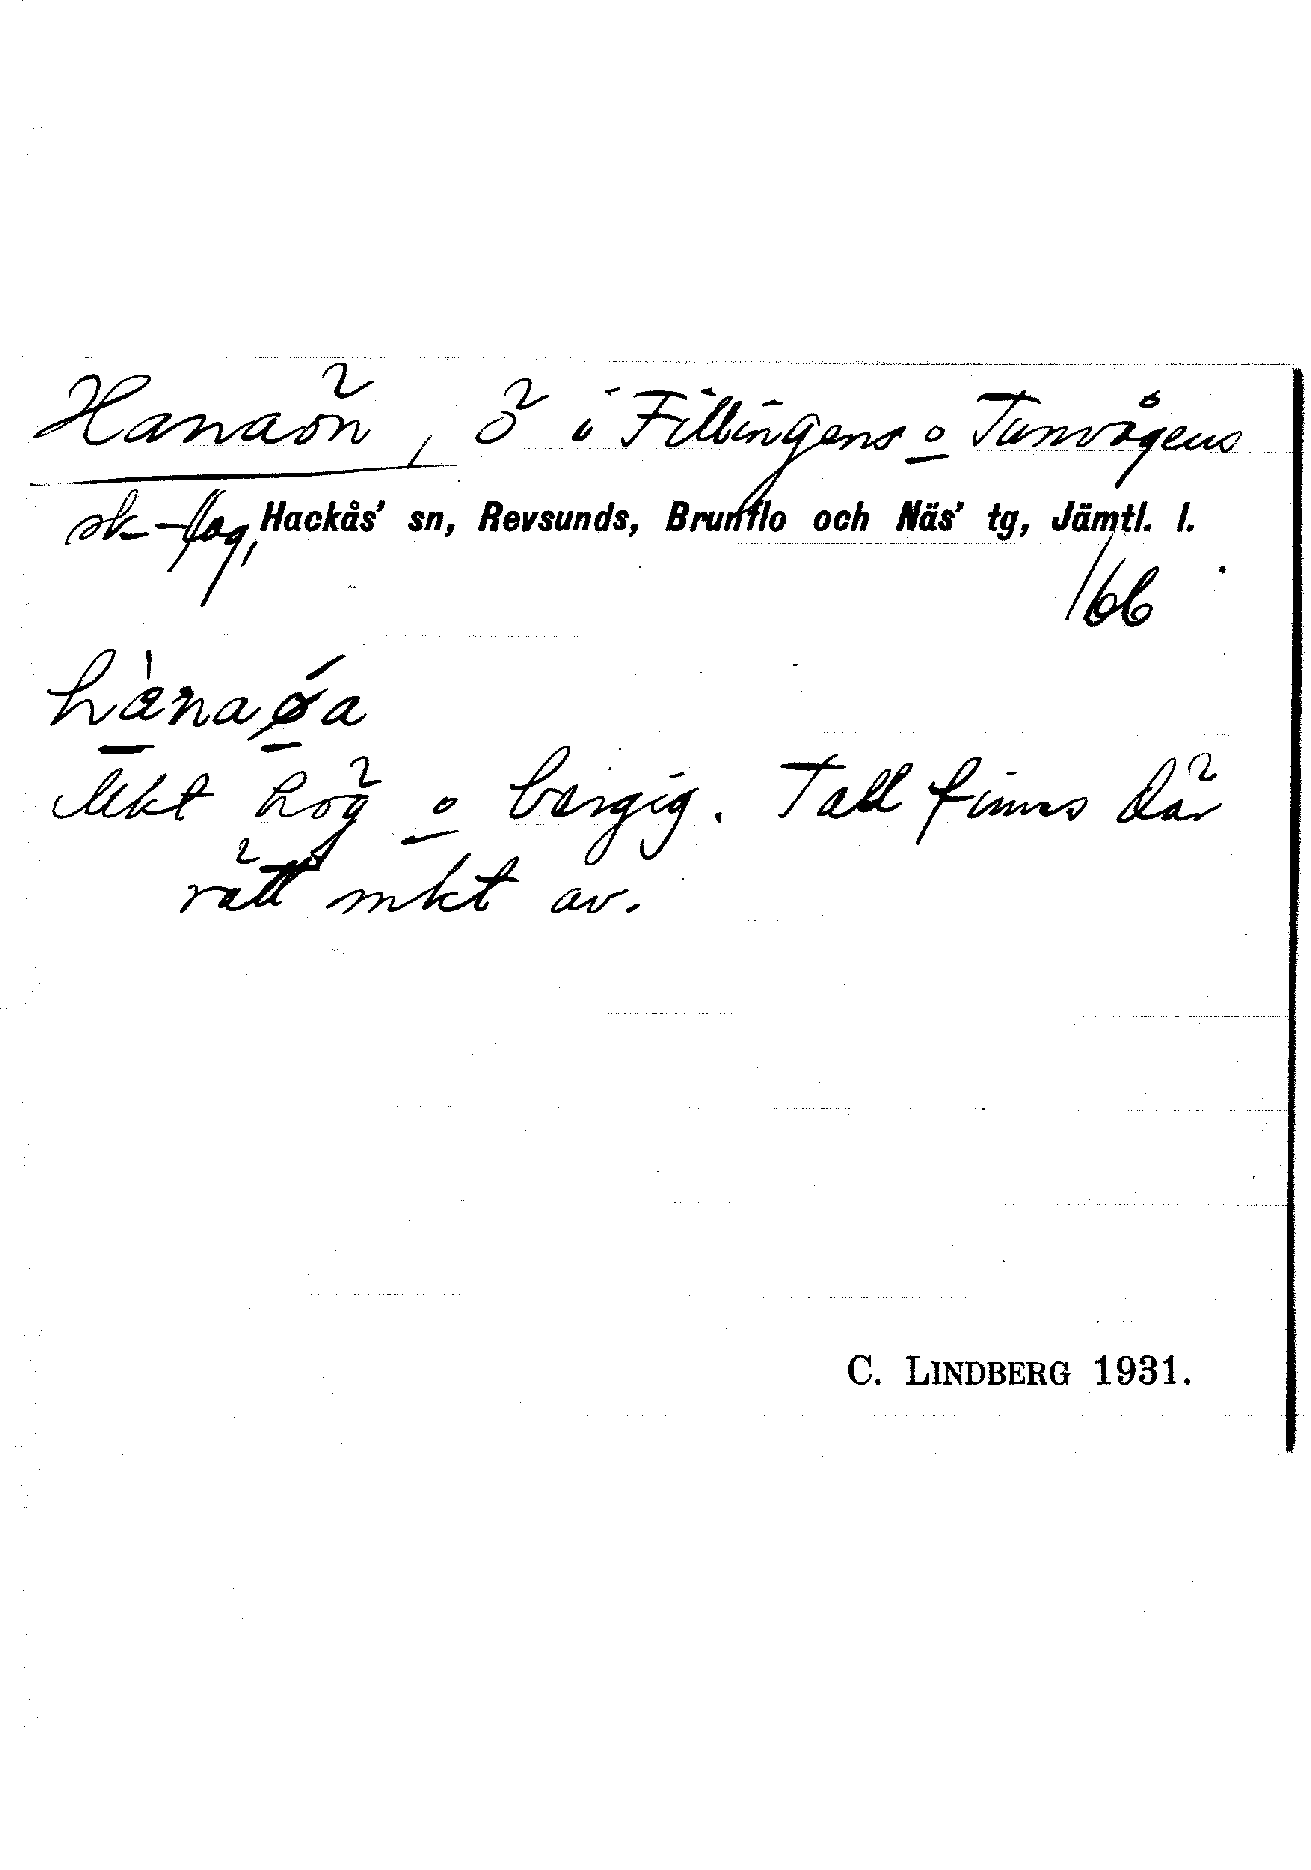 Hanaön, ö i Fillingens o Tunvågens
sk-lag, Hackås' sn, Revsunds, Brunflo och Näs' tg, Jämtl. l.
/66
hànaǿa
Mkt hög o bergig. Tall finns där
rätt mkt av.
C. LINDBERG 1931.